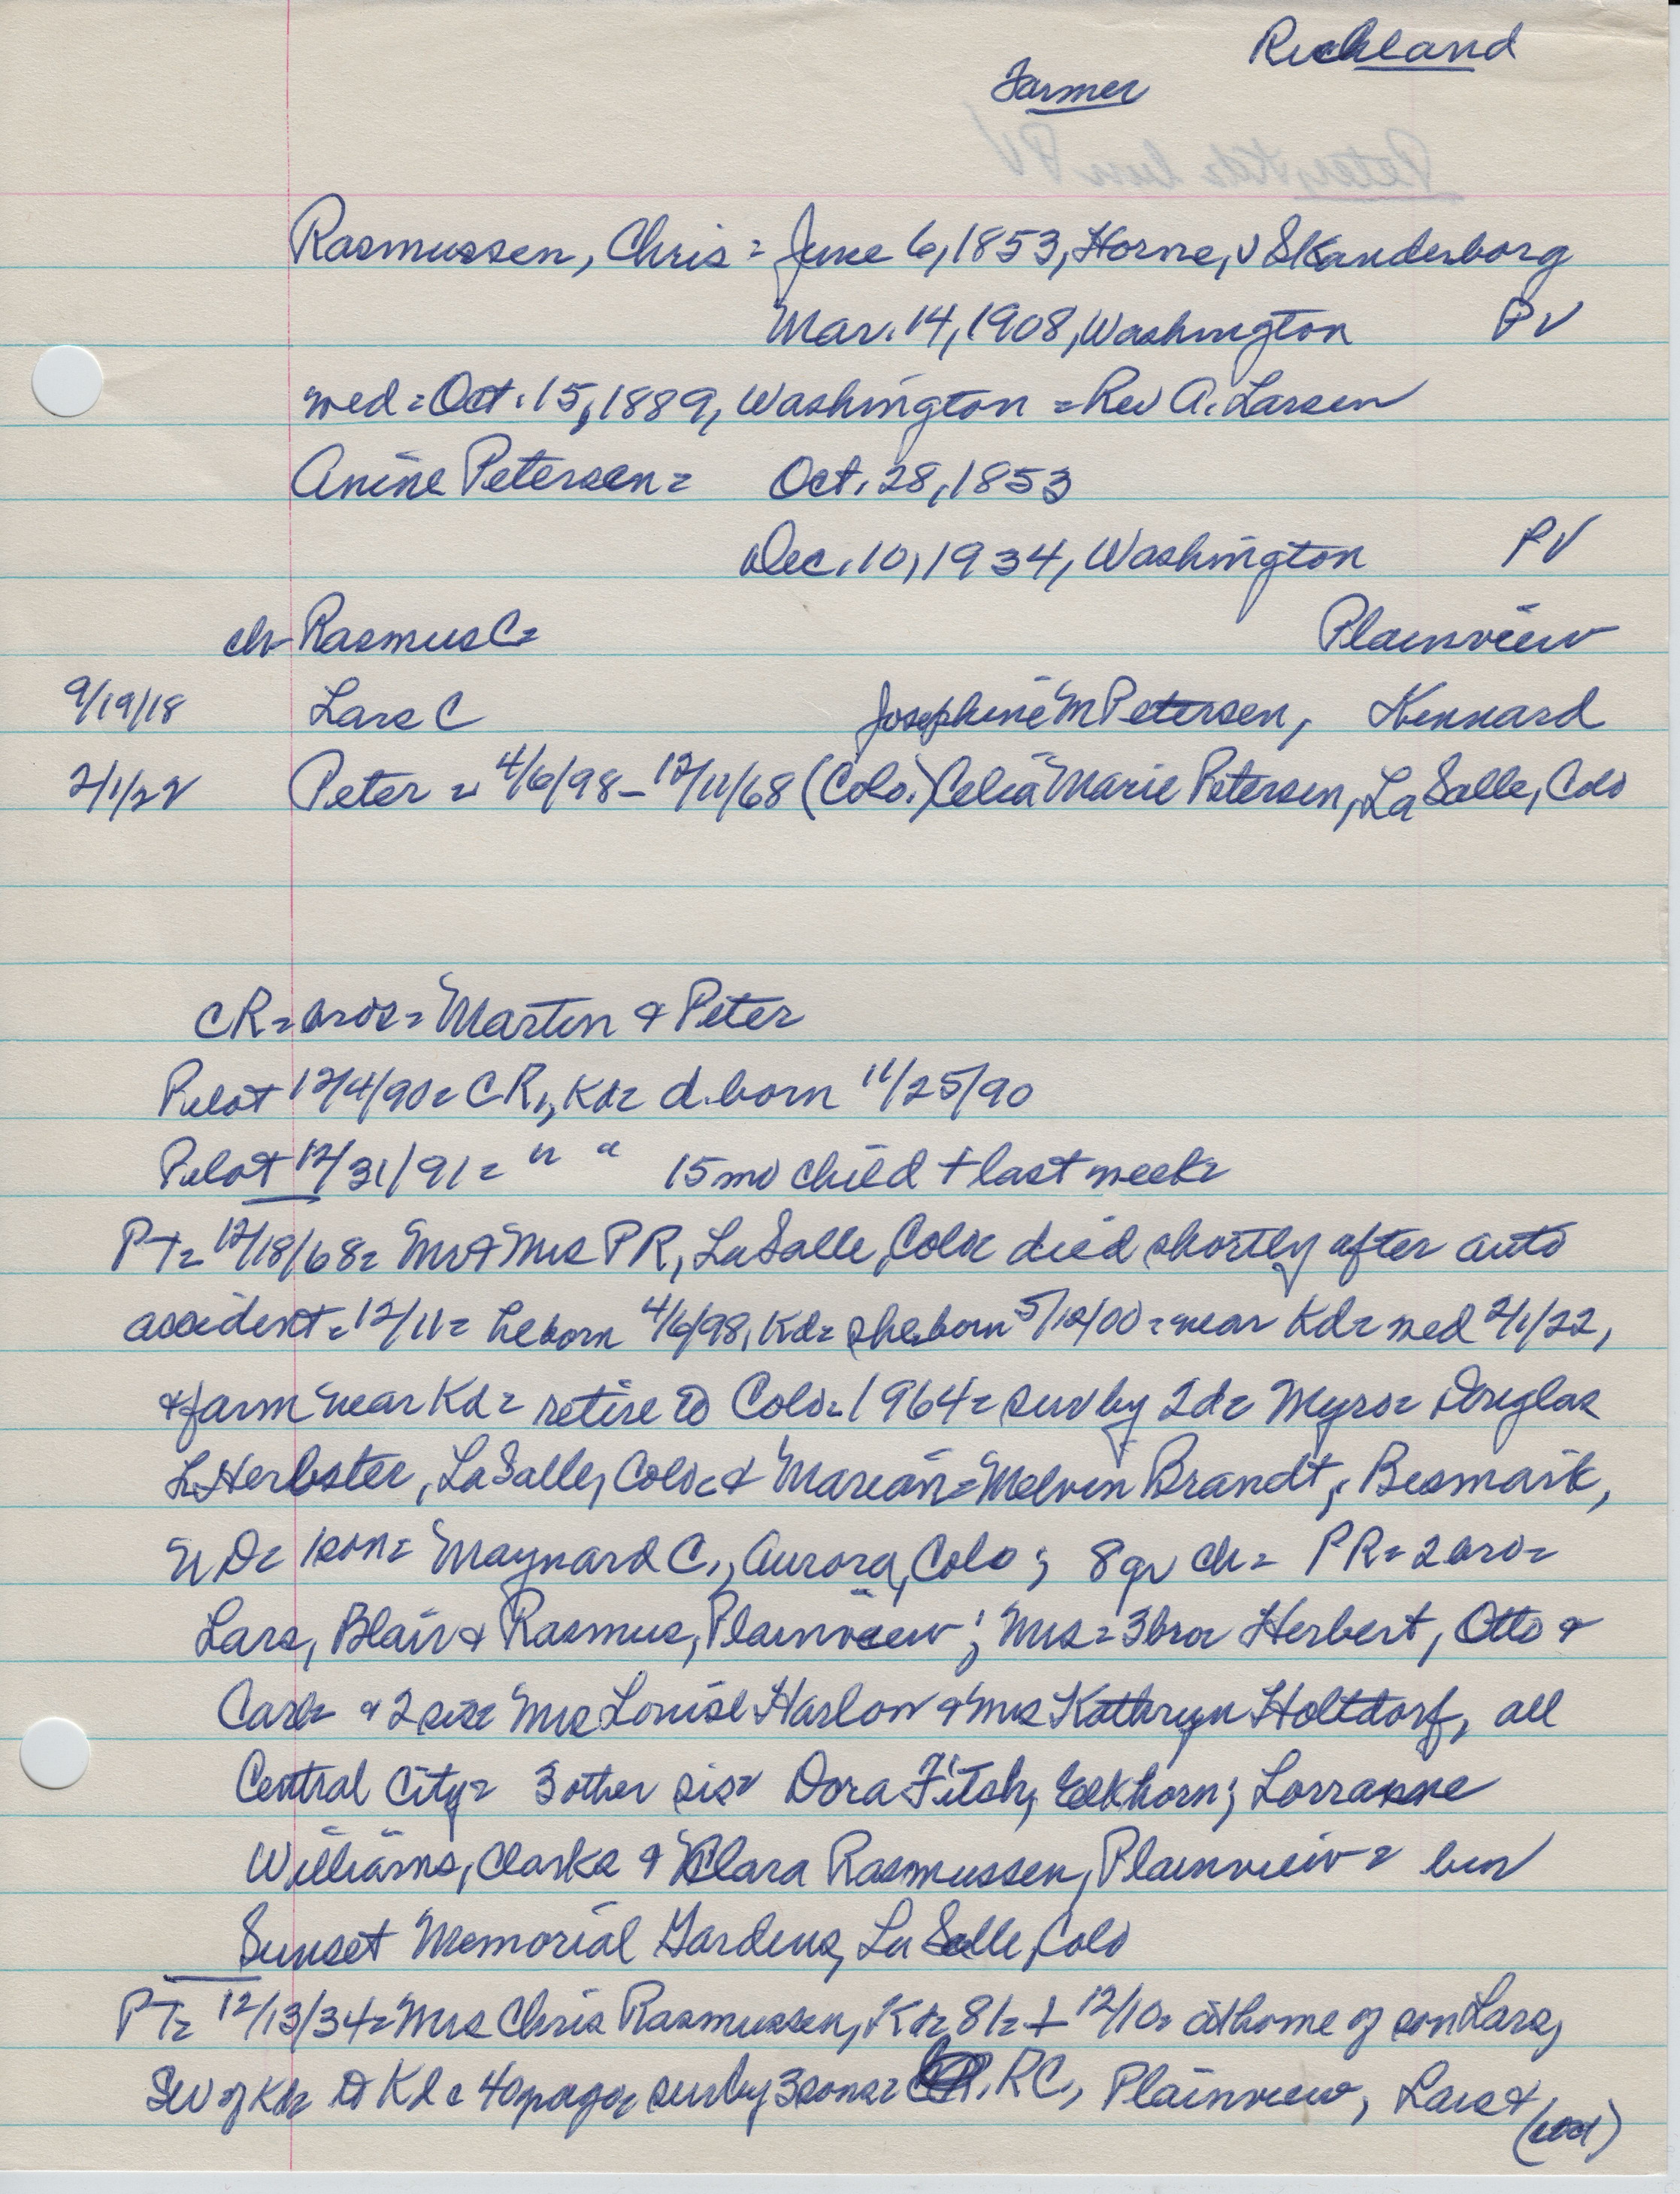 Richland
Farmer
Rasmussen, Chris = June 6, 1853, Horne, v Skanderborg
Mar. 14, 1908, Washington PV
wed = Oct. 15, 1889, Washington = Rev A. Larsen
Anine Petersen = Oct. 28, 1853
Dec. 10, 1934, Washington PV
ch Rasmus C = Plainview
9/19/18 Lars C Josephine M Petersen, Kennard
2/1/22 Peter = 4/6/98 - 12/11/68 (Colo.) Celia Marie Petersen, LaSalle, Colo
CR = bros = Martin & Peter
Pilot 12/4/90 = CR, Kd = d. born 11/25/90
Pilot 12/31/91 = " " 15 mo child + last week =
PT = 12/18/68 = Mr & Mrs PR, LaSalle, Colo = died shortly after auto
accident = 12/11 = he born 4/6/98, Kd = she born 5/12/00 = near Kd = wed 2/1/22,
& farm near Kd = retire to Colo = 1964 = surv by 2 d = Myrs = Douglas
L Herbster, LaSalle, Colo = & Marian = Melvin Brandt, Bismark,
ND = 1 son = Maynard C., Aurora, Colo; 8 gr ch = PR = 2 bro =
Lars, Blair & Rasmus, Plainview; Mrs = 3 bro = Herbert, Otto &
Carl = & 2 sis = Mrs Louise Harlow & Mrs Kathryn Holtdorf, all
Central City = 3 other sis = Dora Fitch, Elkhorn; Lorranne
Williams, Clarks & Clara Rasmussen, Plainview = bur
Sunset Memorial Gardens, LaSalle, Colo
PT = 12/13/34 = Mrs Chris Rasmussen, Kd = 81 = + 12/10 = at home of son Lars,
SW of Kd = to Kd = 40 yr ago = surv by 3 sons = RC, Plainview, Lars &
(cont)